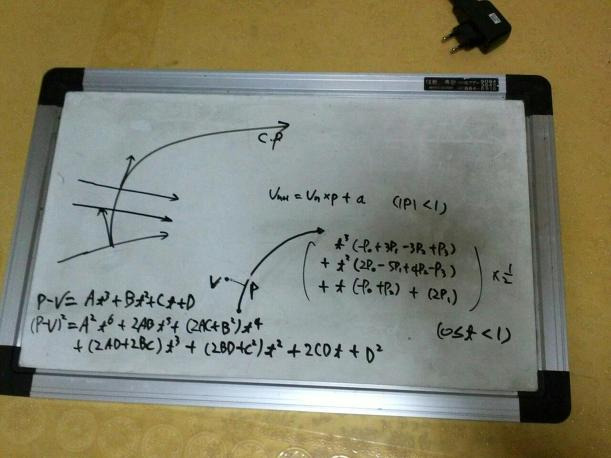 C.P
Vn+1 = Vn × p + a (|P| < 1)
t³(-P₀+3P₁-3P₂+P₃)
+ t²(2P₀-5P₁+4P₂-P₃)
+ t(-P₀+P₂) + (2P₁)
× 1/2
V
P
(0≤t<1)
P-V = At³+Bt²+Ct+D
(P-V)² = A²t⁶ + 2ABt⁵ + (2AC+B²)t⁴
+ (2AD+2BC)t³ + (2BD+C²)t² + 2CDt + D²